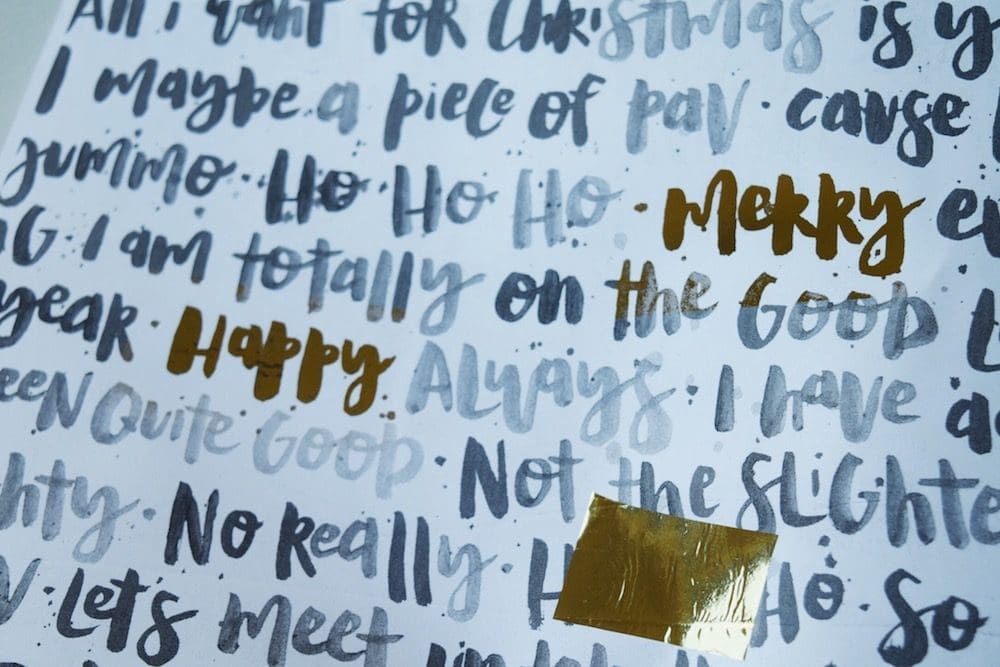 All i want for Christmas is y
I maybe a piece of pav · cause
jummo · Ho · Ho Ho Ho · Merry
G · I am totally on the Good
year · Happy Always · I have
een Quite Good · Not the slighte
hty · No Really
Let's Meet · So